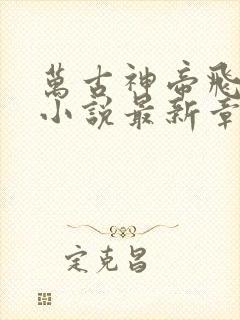 萬古神帝飛
小說最新章
定克昌